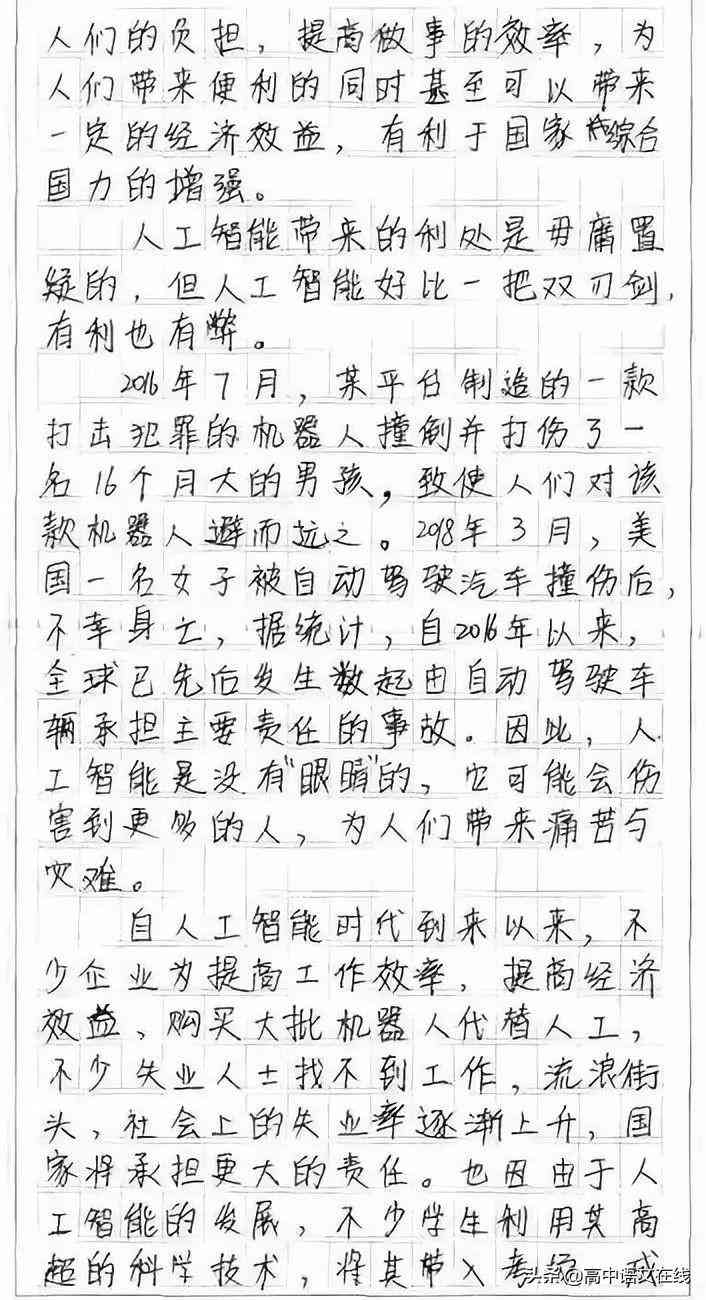 人们的负担，提高做事的效率，为
人们带来便利的同时甚至可以带来
一定的经济效益，有利于国家综合
国力的增强。
人工智能带来的利处是毋庸置
疑的，但人工智能好比一把双刃剑，
有利也有弊。
2016年7月，某平台制造的一款
打击犯罪的机器人撞倒并打伤了一
名16个月大的男孩，致使人们对该
款机器人避而远之。2018年3月，美
国一名女子被自动驾驶汽车撞伤后，
不幸身亡，据统计，自2016年以来，
全球已先后发生数起由自动驾驶车
辆承担主要责任的事故。因此，人
工智能是没有“眼睛”的，它可能会伤
害到更多的人，为人们带来痛苦与
灾难。
自人工智能时代到来以来，不
少企业为提高工作效率，提高经济
效益、购买大批机器人代替人工，
不少失业人士找不到工作，流浪街
头，社会上的失业率逐渐上升，国
家将承担更大的责任。也因由于人
工智能的发展，不少学生利用其高
超的科学技术，将其带入考场，或
头条@高中语文在线